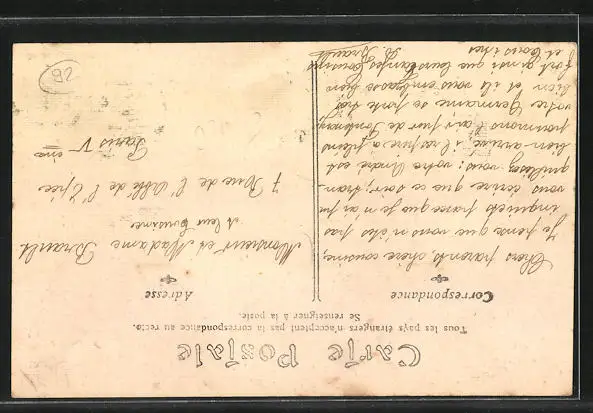 Carte Postale
Tous les pays étrangers n'acceptent pas la correspondance au recto.
Se renseigner à la poste.
Correspondance
Chers parents, chère cousine,
Je pense que vous n'êtes pas
inquiets parce que je n'ai pu
vous écrire que ce soir, tran-
quillisez vous; votre André est
bien arrivé il respire à pleins
poumons l'air pur de
votre Germaine se porte très
bien et ils vous embrasse bien
fort ainsi que leurs
et Louis
Brault
Adresse
Monsieur et Madame Brault
et leur Cousine
7 Rue de l'Abbé de l'Epée
Paris Vème
92